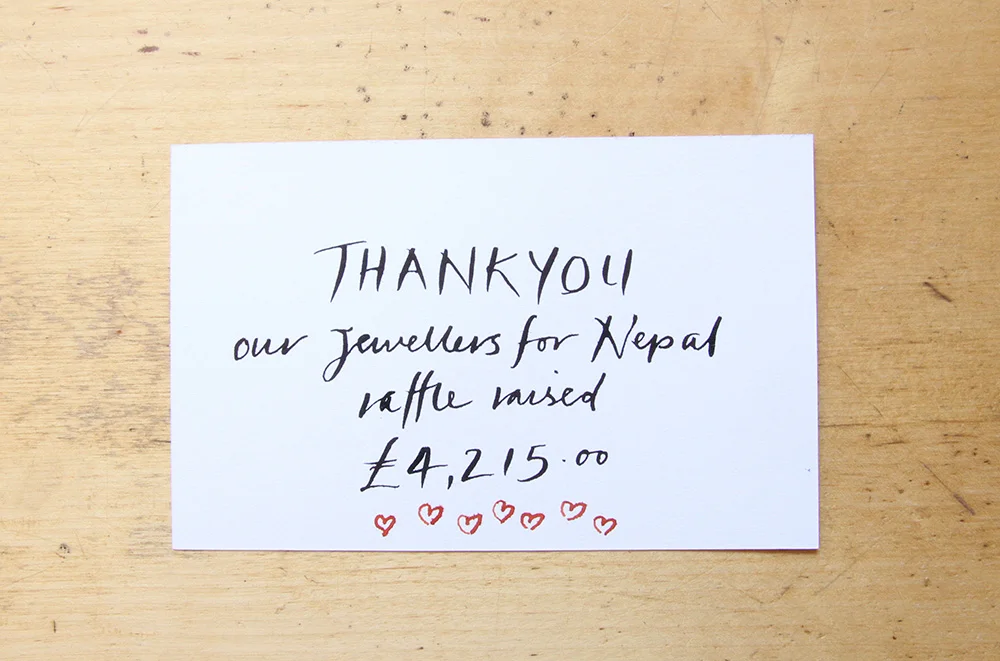 THANKYOU
our Jewellers for Nepal
raffle raised
£4,215.00